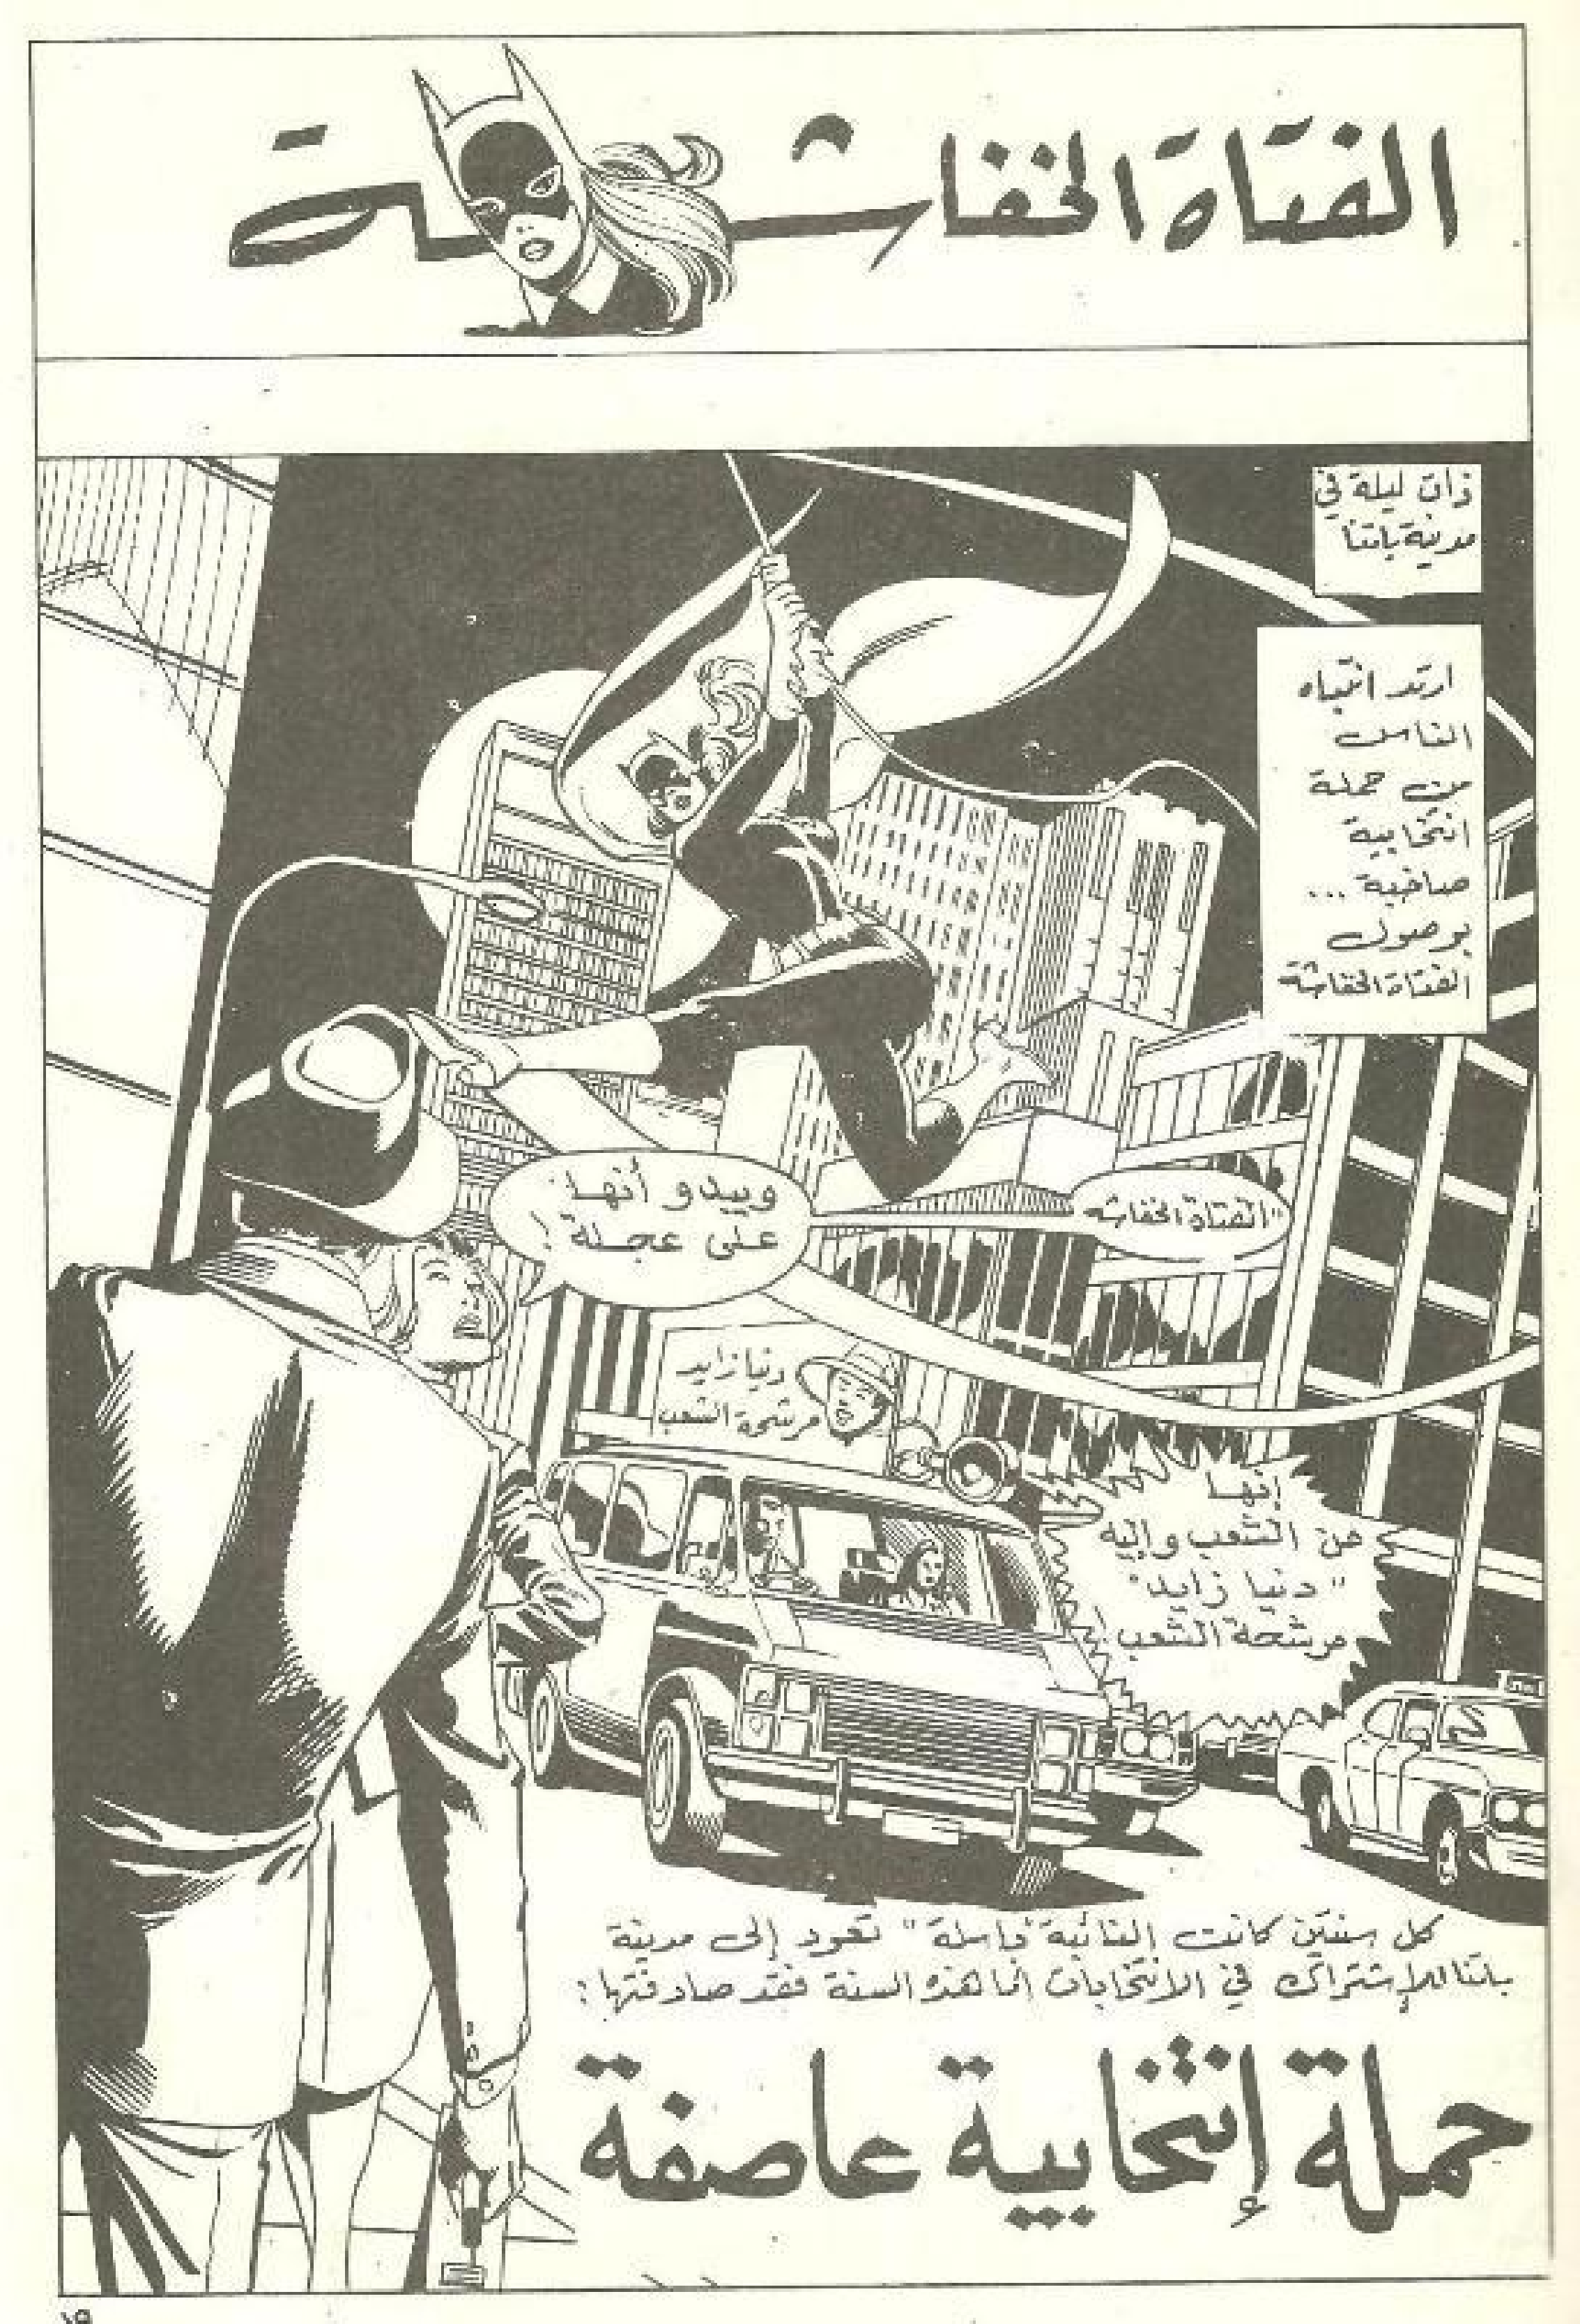 الفتاة الخفاشة
ذات ليلة في
مدينة باتنا
ارتد انتباه
الناس
من حملة
انتخابية
صاخبة ...
بوصول
الفتاة الخفاشة
"الفتاة الخفاشه
ويبدو أنها
على عجلة !
دنيا زايد
مرشحة الشعب
إنها
من الشعب وإليه
"دنيا زايد"
مرشحة الشعب !
كل سنتين كانت النائبة "باسلة" تعود إلى مدينة
باتنا للإشتراك في الانتخابات أما هذه السنة فقد صادفتها :
حملة إنتخابية عاصفة
١٩